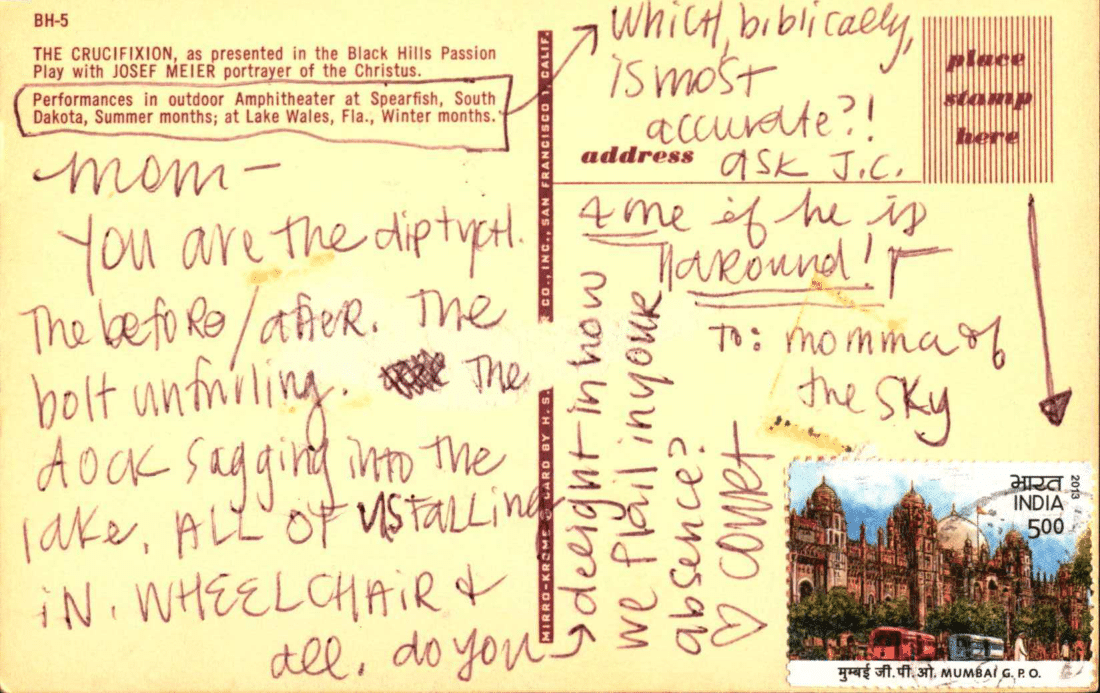 BH-5
THE CRUCIFIXION, as presented in the Black Hills Passion
Play with JOSEF MEIER portrayer of the Christus.
Performances in outdoor Amphitheater at Spearfish, South
Dakota, Summer months; at Lake Wales, Fla., Winter months.
Mom—
You are the diptych.
The before/after. The
bolt unfurling. The
dock sagging into the
lake. ALL OF US FALLING
IN. WHEELCHAIR &
all. do you
delight in how
we flail in your
absence?
♡ COURT
MIRRO-KROME CARD BY H. S.
CO., INC., SAN FRANCISCO 1, CALIF.
Which, biblically,
is most
accurate?!
address
ask J.C.
& me if he is
around!
place
stamp
here
To: momma of
the sky
भारत
INDIA
2013
500
मुम्बई जी.पी.ओ. MUMBAI G.P.O.